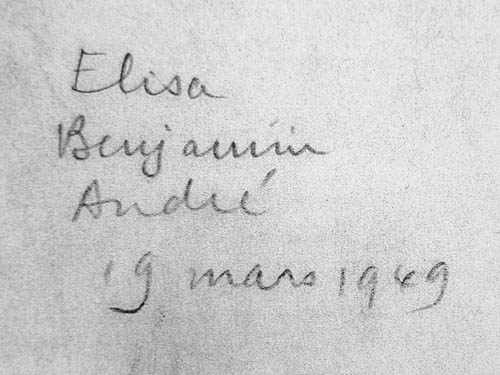 Elisa
Benjamin
André
19 mars 1949